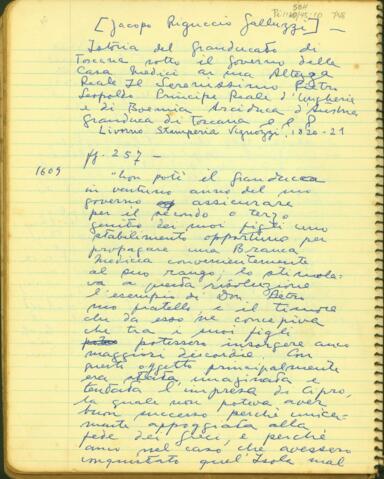 [Jacopo Riguccio Galluzzi] —
Istoria del Granducato di
Toscana sotto il Governo della
Casa Medici a sua Altezza
Reale Il Serenissimo Pietro
Leopoldo Principe Reale d'Ungheria
e di Boemia Arciduca d'Austria
granduca di Toscana e e e
Livorno Stamperia Vignozzi, 1820-21
pg. 257 —
1609 "Non potè il granduca
in ventun anno del suo
governo assicurare
per il secondo o terzo
genito dei suoi figli uno
stabilimento opportuno per
propagare una Branca
Medicea convenientemente
al suo rango; lo stimola-
va a questa risoluzione
l'esempio di Don Pietro
suo fratello e il timore
che da esso ne concepiva
che tra i suoi figli
potessero insorgere anco
maggiori discordie. Con
questo oggetto principalmente
era stata immaginata e
tentata l'impresa di Cipro,
la quale non poteva aver
buon successo perchè unica-
mente appoggiata alla
fede dei Greci, e perchè
anco nel caso che avessero
conquistato quell'Isola mal